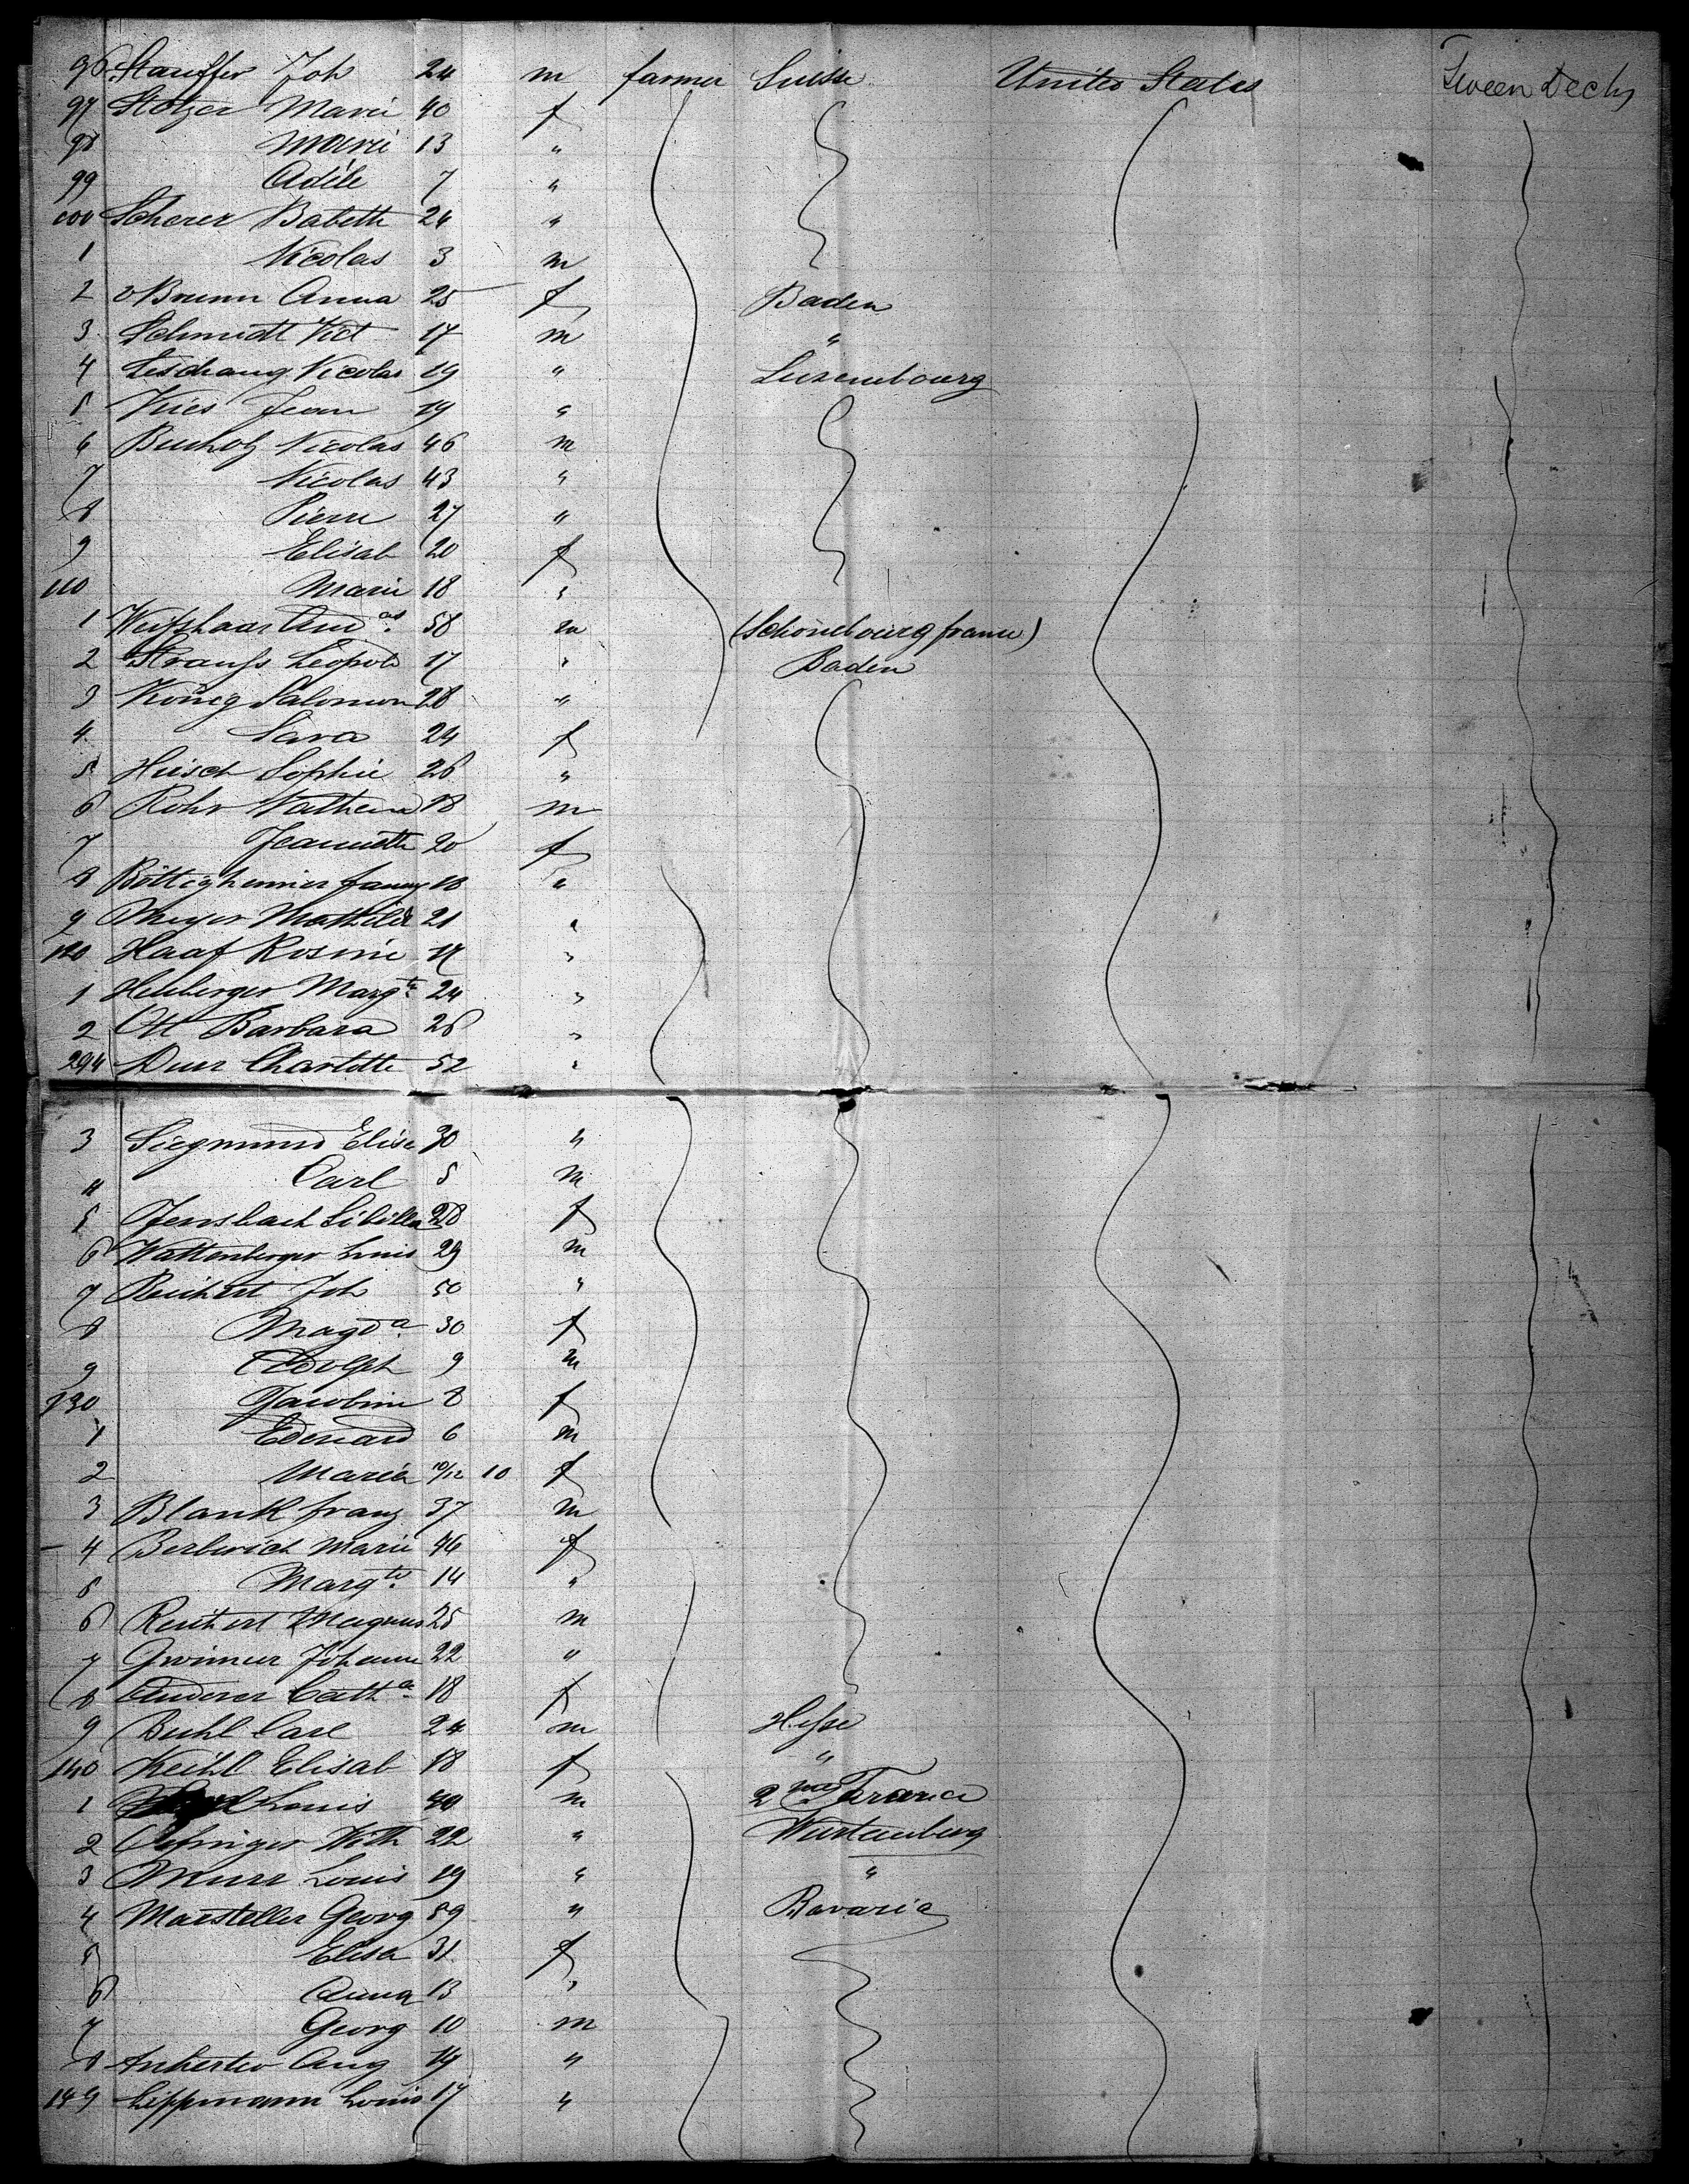 96 Stauffer Joh 24 m farmer Suisse United States Tween Decks
97 Stotzer Marie 40 f
98 Marie 13 "
99 Adèle 7 "
100 Scherer Babette 24 "
1 Nicolas 3 m
2 v Brunn Anna 25 f Baden
3 Schmidt Vict 17 m "
4 Leschang Nicolas 19 " Luxembourg
5 Kries Jean 19 "
6 Bucholz Nicolas 46 m
7 Nicolas 43 "
8 Pierre 27 "
9 Elisab 20 f
110 Marie 18 "
1 Weishaar And as. 58 m (Schonebourg france)
2 Strauss Leopold 17 " Baden
3 König Salomon 28 "
4 Sara 24 f
5 Hirsch Sophie 26 "
6 Rohr Nathan 18 m
7 Jeannette 20 f
8 Böttigheimer fanny 18 "
9 Meyer Mathilde 21 "
120 Haaf Rosine 17 "
1 Heuberger Marg te 24 "
2 Ott Barbara 26 "
294 Durr Charlotte 52 "
3 Siegmund Elise 30 "
4 Carl 5 m
5 Fensbach Sibilla 28 f
6 Wattenberger Louis 29 m
7 Reichert Joh 50 "
8 Magd a 30 f
9 Adolph 9 m
130 Jacobine 8 f
1 Edouard 6 m
2 Maria 10/12 10 f
3 Blank franz 37 m
4 Berberich Marie 46 f
5 Marg te. 14 "
6 Reichert Magnus 25 m
7 Grimmer Johann 22 "
8 Anderer Cath a 18 f
9 Buhl Carl 24 m Hesse
140 Keihl Elisab 18 f "
1 Louis 40 m 2
2 Oefinger Kath 22 " Wurtemburg
3 Murr Louis 19 " "
4 Marsteller Georg 39 " Bavaria
5 Elisa 31 f
6 Anna 13 "
7 Georg 10 m
8 Aug 19 "
149 Lippmann Louis 17 "